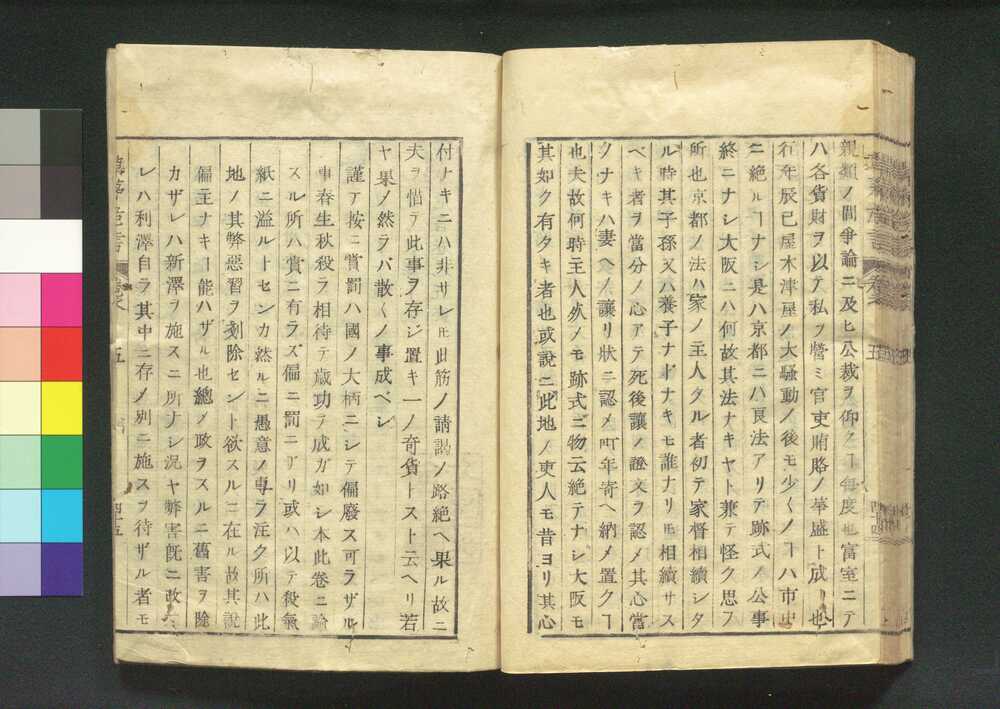 親類ノ間爭論ニ及ヒ公裁ヲ仰クヿ每度也富室ニテ
ハ各貨財ヲ以テ私ヲ營ミ官吏賄賂ノ華盛ト成リ也
行年辰巳屋木津屋ノ大騷動ノ後モ少クノヿハ市中
ニ絶ルヿナシ是ハ京都ニハ良法アリテ跡式ノ公事
終ニナシ大阪ニハ何故其法ナキヤト兼テ怪ク思フ
所也京都ノ法ハ家ノ主人タル者初テ家督相續シタ
ル時其子孫又ハ養子ナドナキモ誰ナリモ相續サス
ベキ者ヲ當分ノ心アテ死後讓ノ證文ヲ認メ其心當
クナキハ妻ヘノ讓リ狀ニ認メ町年寄ヘ納メ置クヿ
也夫故何時主人歿ノモ跡式ニ物云絶テナシ大阪モ
其如ク有タキ者也或說ニ此地ノ吏人モ昔ヨリ其心
付ナキニハ非サレモ此筋ノ請謁ノ路絶ヘ果ル故ニ
夫ヲ惜テ此事ヲ存ジ置キ一ノ奇貨トスト云ヘリ若
ヤ果ノ然ラバ散〱ノ事成ベシ
謹テ按ニ賞罰ハ國ノ大柄ニシテ偏廢ス可ラザル
事春生秋殺ラ相待テ歲功ヲ成ガ如シ本此卷ニ論
スル所ハ賞ニ有ラズ偏ニ罰ニアリ或ハ以テ殺氣
紙ニ溢ルトセンカ然ルニ愚意ノ專ラ注ク所ハ此
地ノ其弊惡習ヲ刻除セント欲スルニ在ル故其說
偏主ナキヿ能ハザル也總ノ政ヲスルニ舊害ヲ除
カザレハ新澤ヲ施スニ所ナシ況ヤ弊害旣ニ改ノ
レハ利澤自ラ其中ニ存ノ別ニ施スヲ待ザル者モ
五
四十五